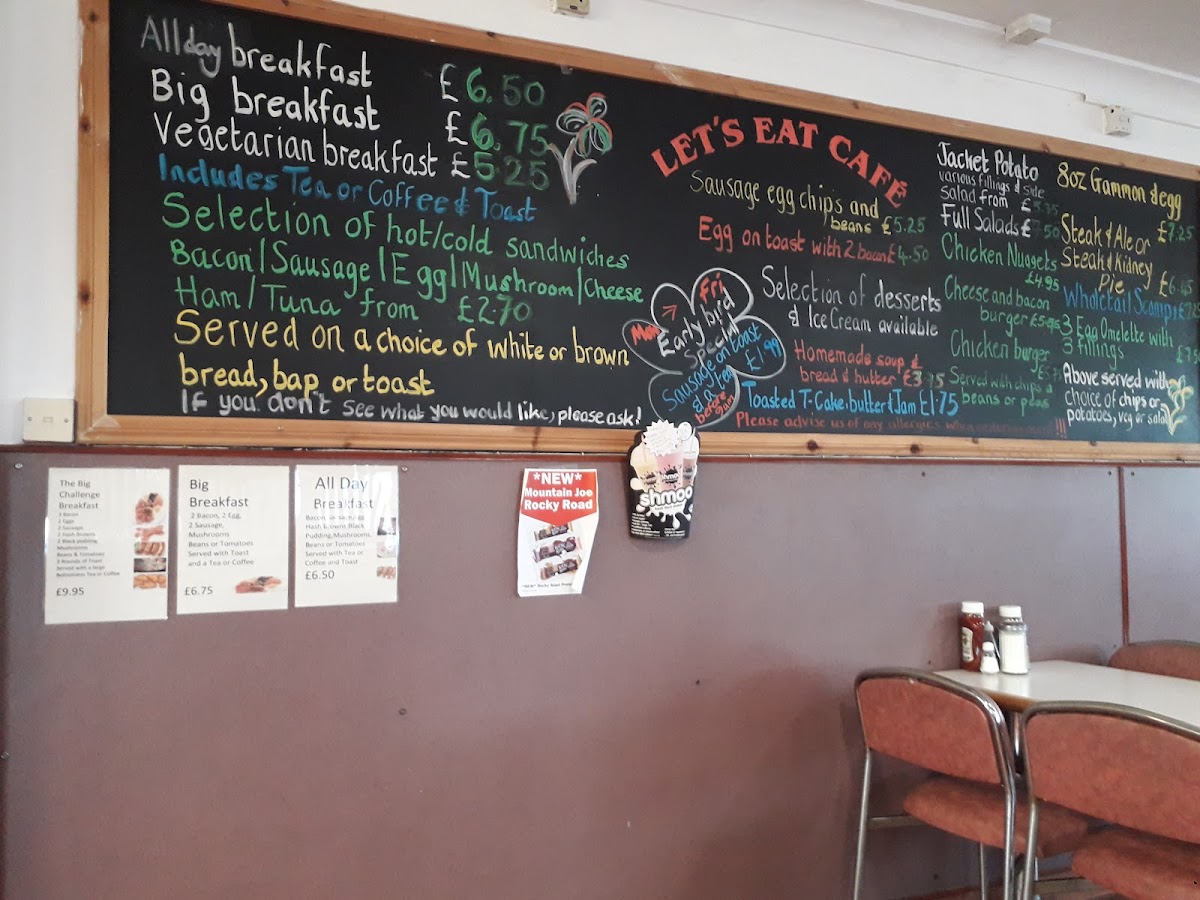 All day breakfast £6.50
Big breakfast £6.75
Vegetarian breakfast £5.25
Includes Tea or Coffee & Toast
Selection of hot/cold sandwiches
Bacon/Sausage/Egg/Mushroom/Cheese
Ham/Tuna from £2.70
Served on a choice of white or brown
bread, bap, or toast
If you don't see what you would like, please ask!
LET'S EAT CAFÉ
Sausage egg chips and
beans £5.25
Egg on toast with 2 bacon £4.50
Mon → Fri
Early bird
Special
Sausage on toast
& a tea
£1.99
before
9am
Selection of desserts
& Ice Cream available
Homemade soup &
bread & butter £3.75
Toasted T-Cake, butter & Jam £1.75
Please advise us of any allergies when
Jacket Potato
various fillings & side
salad from £
Full Salads £
Chicken Nuggets
£4.95
Cheese and bacon
burger
Chicken burger
Served with chips &
beans or peas
8oz Gammon & egg
£7.25
Steak & Ale or
Steak & Kidney
Pie
Wholetail Scampi
3 Egg Omelette with
3 fillings
Above served with
choice of chips or
potatoes, veg or salad
The Big
Challenge
Breakfast
3 Bacon
2 Eggs
2 Sausage
2 Hash Browns
2 Black pudding
Mushrooms
Beans & Tomatoes
3 Rounds of Toast
Served with a large
Bottomless Tea or Coffee
£9.95
Big
Breakfast
2 Bacon, 2 Egg,
2 Sausage,
Mushrooms
Beans or Tomatoes
Served with Toast
and a Tea or Coffee
£6.75
All Day
Breakfast
Hash Browns, Black
Pudding, Mushrooms,
Beans or Tomatoes
Served with Tea or
Coffee and Toast
£6.50
*NEW*
Mountain Joe
Rocky Road
shmoo